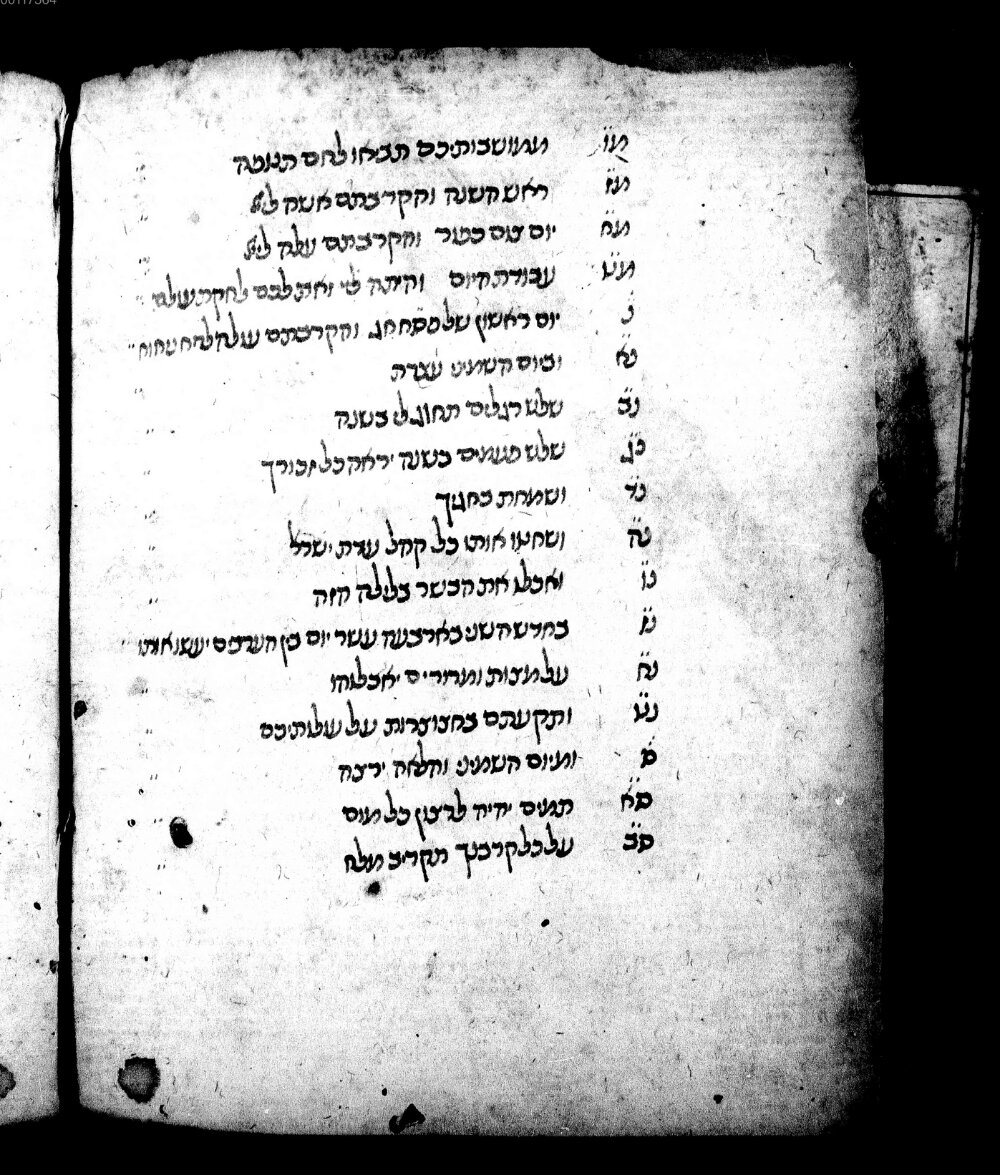 מו ממושבותיכם תביאו לחם תנופה
מז ראש השנה והקרבתם אשה ליי
מח יום צום כפור והקרבתם עולה ליי
מט עבודת היום והיתה לכם לחקת עולם
נ יום ראשון של פסח והקרבתם עולה לריח ניחוח
נא וביום השמיני עצרת
נב שלש רגלים תחוג לי בשנה
נג שלש פעמים בשנה יראה כל זכורך
נד ושמחת בחגיך
נה ושחטו אותו כל קהל עדת ישראל
נו ואכלו את הבשר בלילה הזה
נז בחדש השני בארבעה עשר יום בין הערבים יעשו אותו
נח על מצות ומרורים יאכלוהו
נט ותקעתם בחצוצרות על עולותיכם
ס ומיום השמיני והלאה ירצה
סא תמים יהיה לרצון כל מום
סב על כל קרבנך תקריב מלח